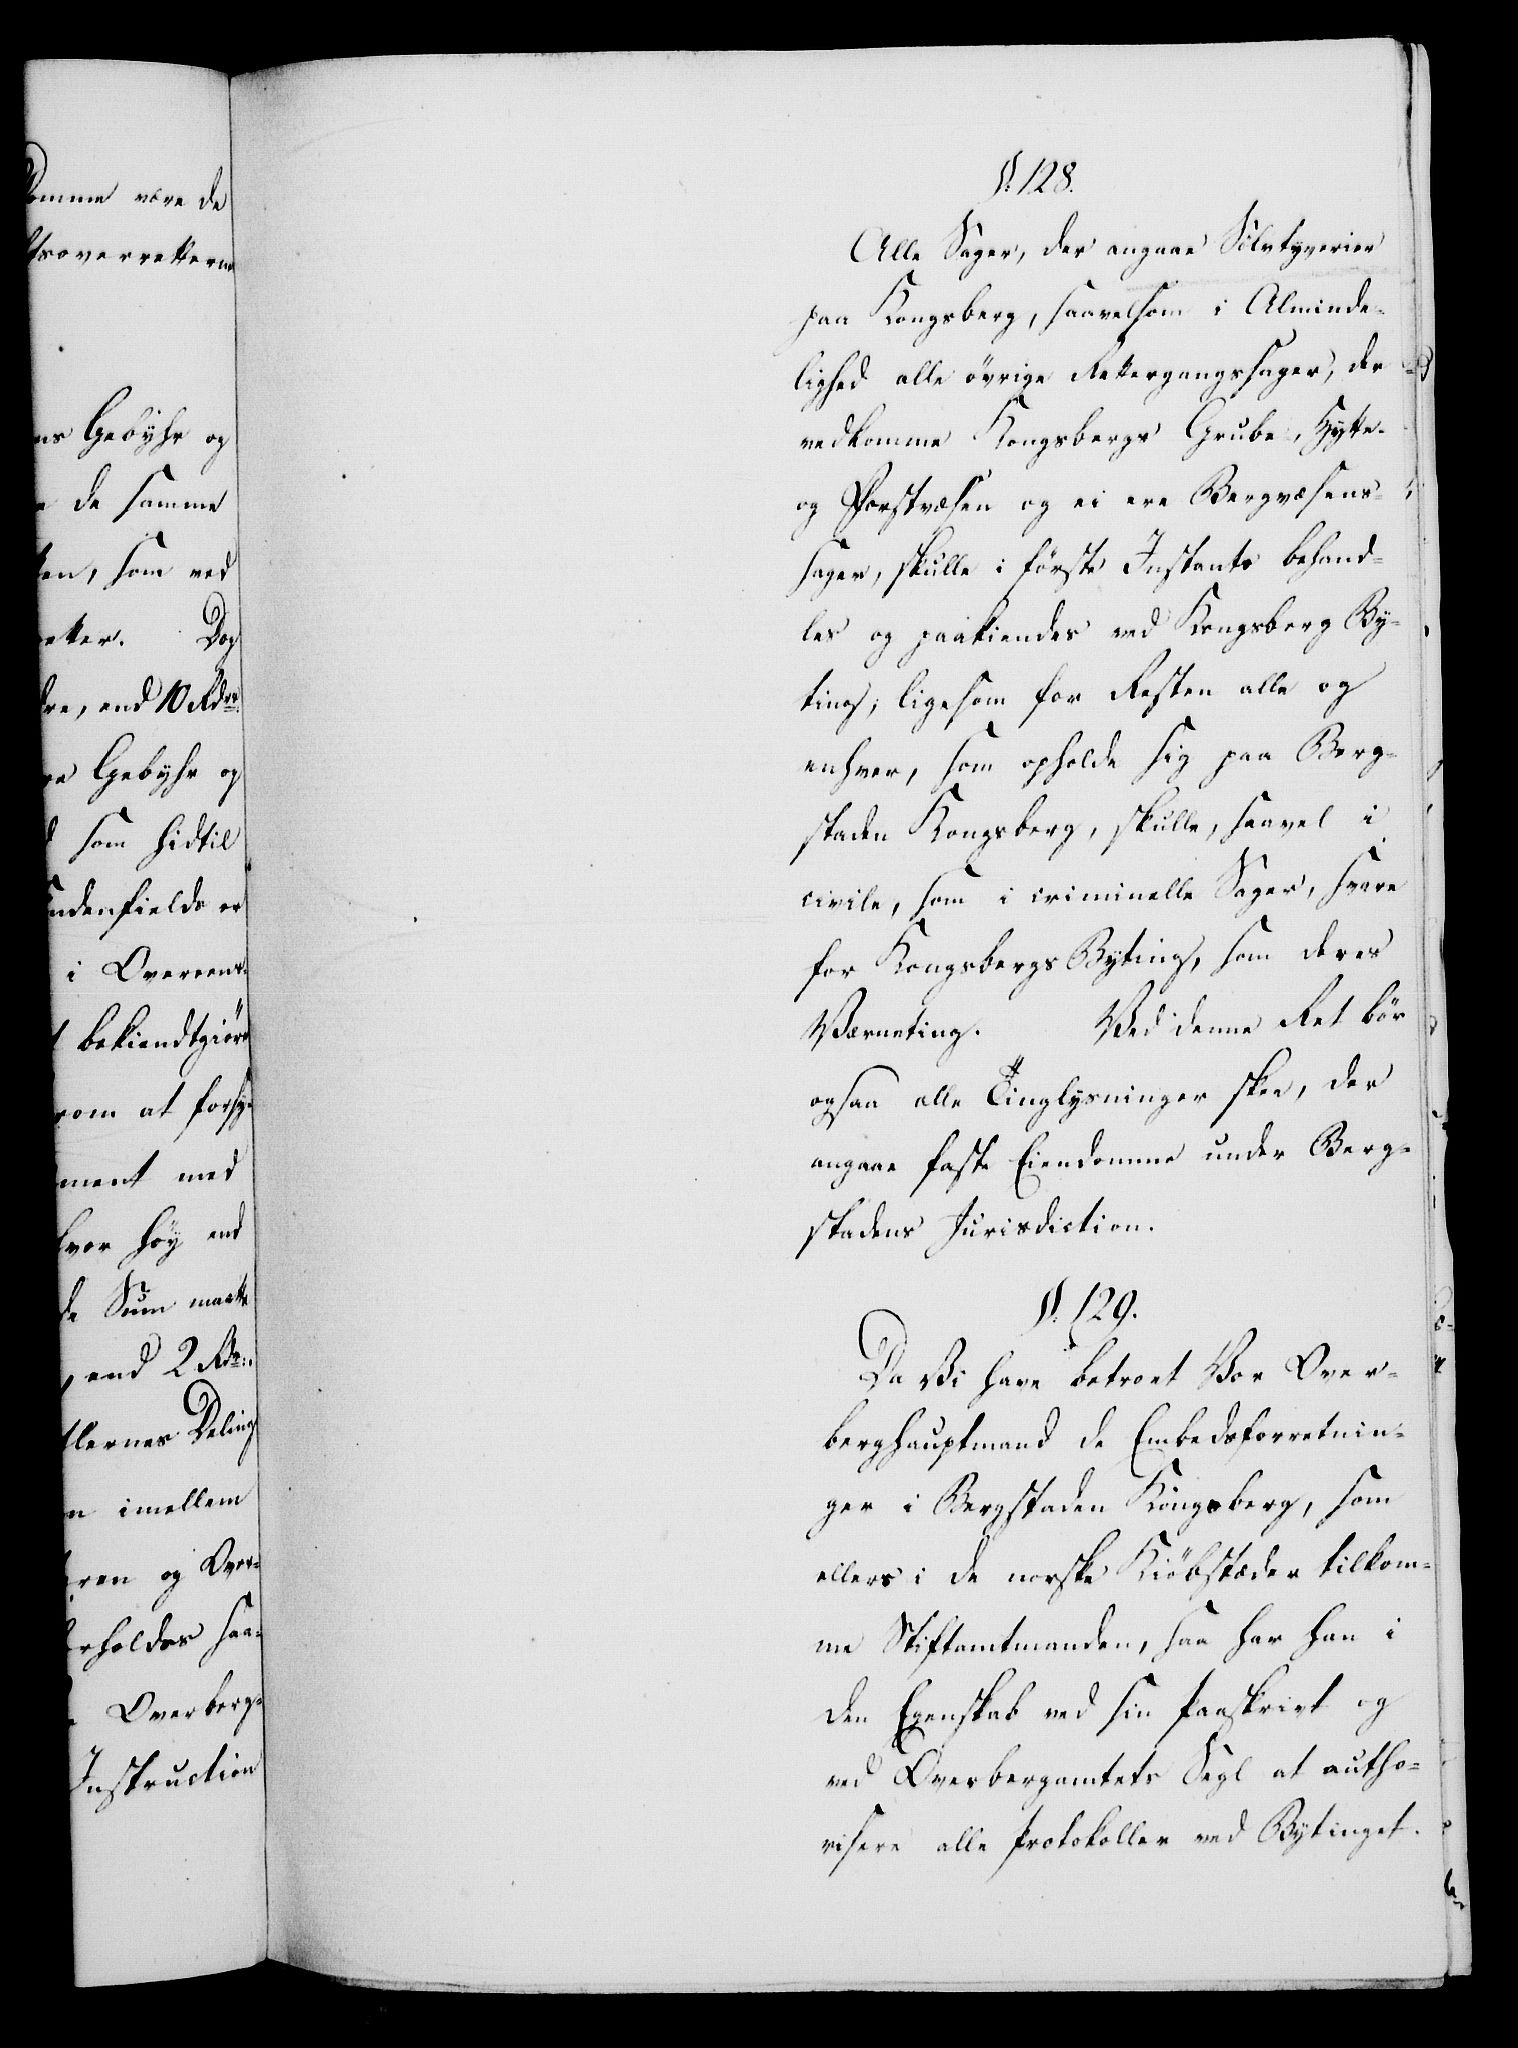 omme være de
tsoverretterne
ns Gebyhr og
e de samme
ten, som ved
etter. Dog
dre, end 10 Rdr.
re Gebyhr og
d som hidtil
ndenfields er
i Overeens-
t bekiendtgiöre
rom at forsy-
ment med
hvor höy end
de Sum maatte
, end 2 Rdr.
tlernes Deling
n imellem
ren og Over-
rholdes saa-
Overberg-
Instruction
§. 128.
Alle Sager, der angaae Sölvtyverier
paa Kongsberg, saavelsom i Alminde-
lighed alle övrige Rettergangssager, der
vedkomme Kongsbergs Grube-, Hytte-
og Forstvæsen og ei ere Bergvæsens-
sager, skulle i förste Instants behand-
les og paakiendes ved Kongsberg By-
ting; ligesom for Resten alle og
enhver, som opholde sig paa Berg-
staden Kongsberg, skulle, saavel i
civile, som i criminelle Sager, svare
for Kongsbergs Byting, som deres
Værneting. Ved denne Ret bör
ogsaa alle Tinglysninger skee, der
angaae faste Eiendomme under Berg-
stadens Jurisdiction.
§. 129.
Da Vi have betroet Vor Over-
berghauptmand de Embedsforretnin-
ger i Bergstaden Kongsberg, som
ellers i de norske Kiöbstæder tilkom-
me Stiftamtmanden, saa har han i
den Egenskab ved sin Paaskrivt og
ved Overbergamtets Segl at autho-
risere alle Protokoller ved Bytinget.